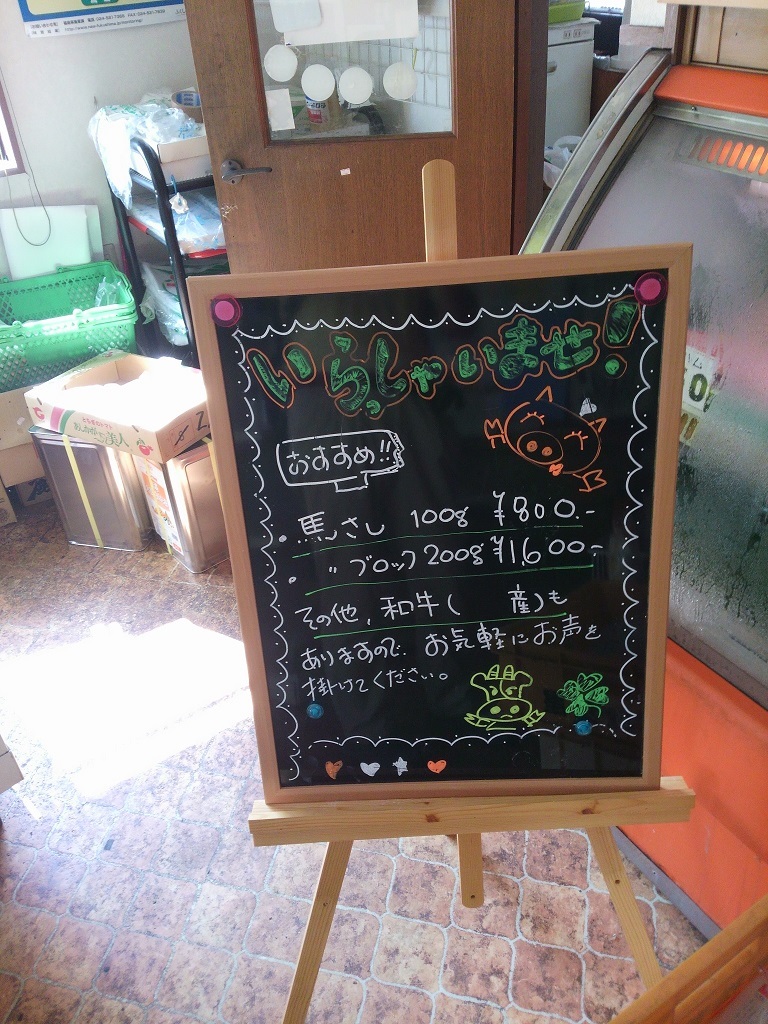 いらっしゃいませ!
おすすめ!!
・馬さし 100g ¥800.-
・ 〃 ブロック 200g ¥1,600-
その他、和牛( 産)も
ありますので、お気軽にお声を
掛けてください。